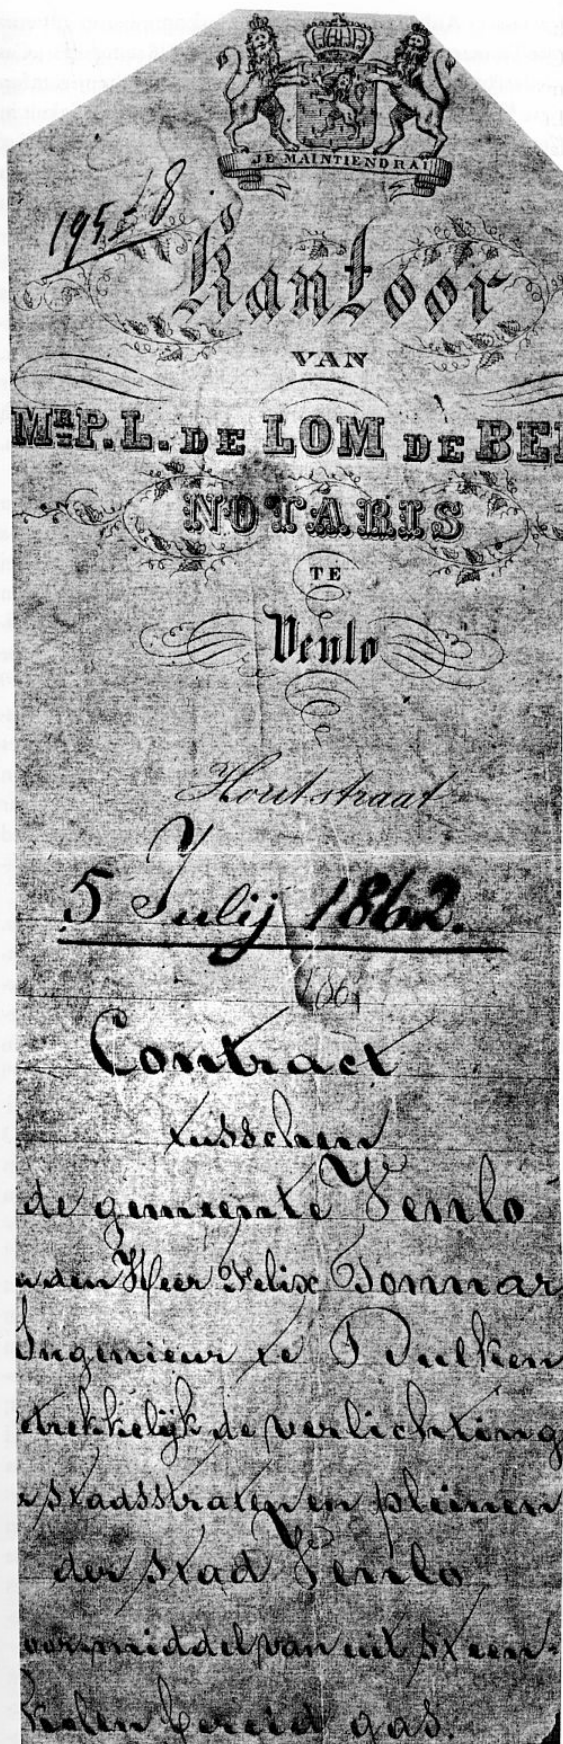 JE MAINTIENDRAI
Kantoor
VAN
MR. P. L. DE LOM DE BE
NOTARIS
TE
Venlo
Houtstraat
5 Julij 1862.
186
Contract
tusschen
de gemeente Venlo
n den Heer Felix Tonnar
Ingenieur te Dulken
etrekkelijk de verlichting
r stadsstraten en pleinen
der stad Venlo
oor middel van uit steen-
kolen bereid gas.